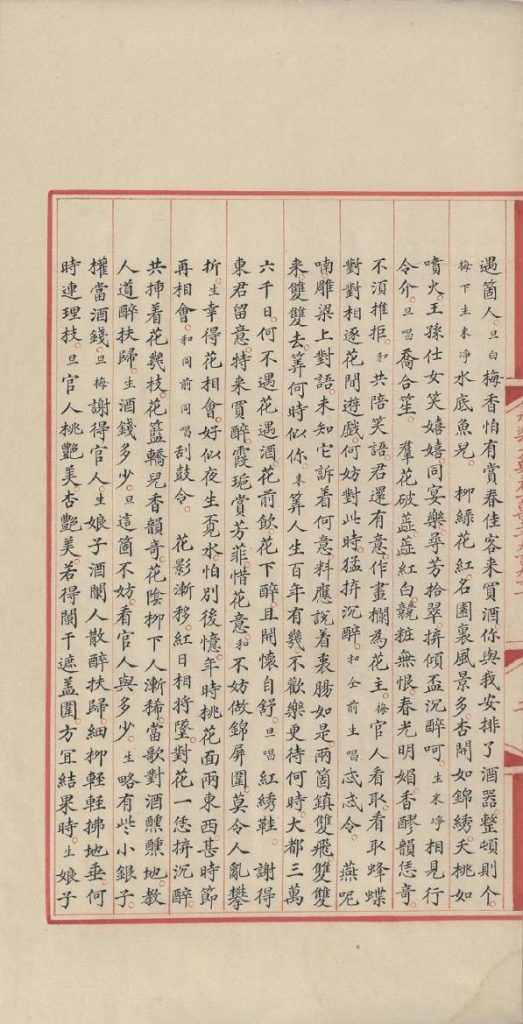 遇箇人旦白梅香怕有賞春佳客来買酒你與我安排了酒器整頓則个
梅下生末净水底魚兒 柳綠花紅名園裏風景多杏開如錦綉夭桃如
噴火王孫仕女笑嬉嬉同宴樂尋芳拾翠拚傾盃沉醉呵生末净相見行
令介旦唱喬合笙 羣花破蕋蕋紅白競粧無恨春光明媚香醪韻恁奇
不須推拒和共陪笑語君還有意作畫欄為花主梅官人看取看取蜂蝶
對對相逐花間遊戲何妨對此時猛拚沉醉和仝前土唱忒忒令 燕呢
喃雕梁上對語未知它訴着何意料應說着衷腸如是兩箇鎮雙飛雙雙
来雙雙去筭何時似你末筭人生百年有幾不歡樂更待何時大都三萬
六千日何不遇花遇酒花前飲花下醉且開懷自舒旦唱紅綉鞋 謝得
東君留意特来買醉霞巵賞芳菲惜花意和不妨做錦屏圍莫令人亂攀
折生幸得花相會好似夜生寛水怕別後憶年時桃花面兩東西甚時節
再相會和同前同唱刮鼓令 花影漸移紅日相將墜對花一恁拚沉醉
共挿着花幾技花籃轎兒香韻奇花陰柳下人漸稀當歌對酒醺醺地教
人道醉扶歸生酒錢多少旦這箇不妨看官人與多少生略有些小銀子
權當酒錢旦梅謝得官人生娘子酒闌人散醉扶歸細柳輕輕拂地垂何
時連理技旦官人桃艶美杏艶美若得闌干遮盖圍方冝結果時生娘子